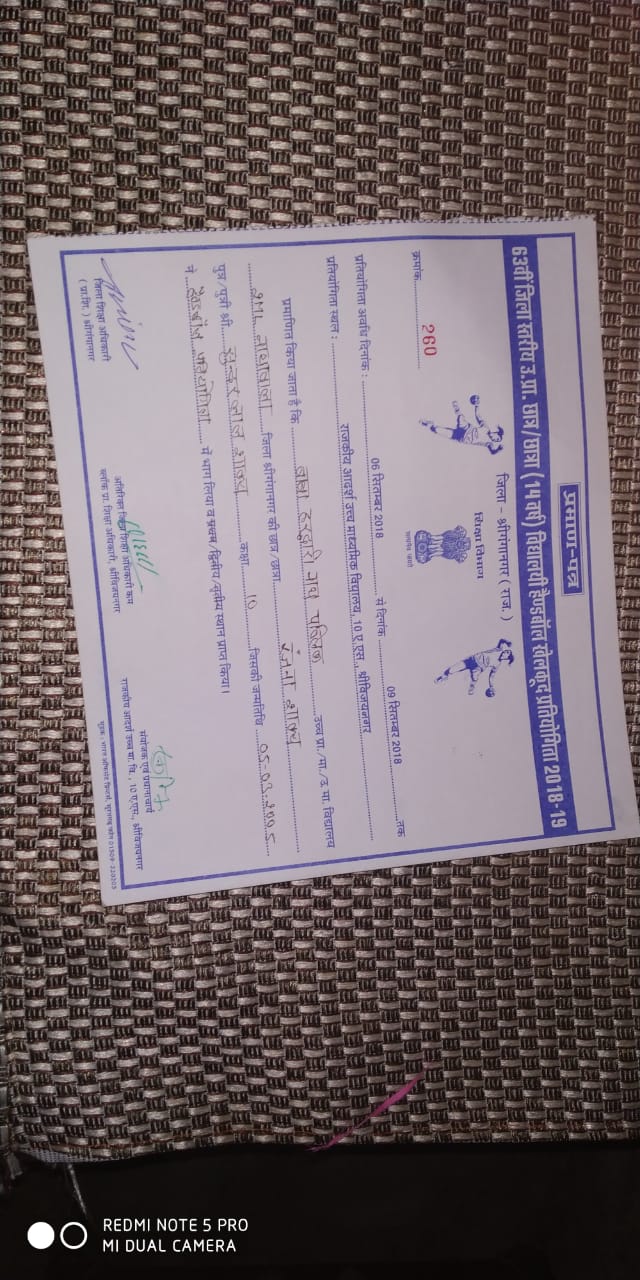 प्रमाण-पत्र
63वीं जिला स्तरीय उ.प्रा. छात्र/छात्रा (14 वर्ष) विद्यालयी हैण्डबॉल खेलकूद प्रतियोगिता 2018-19
जिला - श्रीगंगानगर ( राज. )
शिक्षा विभाग
क्रमांक 260
प्रतियोगिता अवधि दिनांक : 06 सितम्बर 2018 से दिनांक 09 सितम्बर 2018 तक
प्रतियोगिता स्थल : राजकीय आदर्श उच्च माध्यमिक विद्यालय, 10 ए एस., श्रीविजयनगर
प्रमाणित किया जाता है कि बाबा नाथ पब्लिक उच्च प्रा./मा./उ मा. विद्यालय
नाथावाला जिला श्रीगंगानगर की छात्र/छात्रा रंजना शाक्य
पुत्र/पुत्री श्री सुन्दर लाल शाक्य कक्षा 10 जिसकी जन्मतिथि 05-03-2005
ने हैण्डबॉल प्रतियोगिता में भाग लिया व प्रथम/द्वितीय/तृतीय स्थान प्राप्त किया।
जिला शिक्षा अधिकारी
( प्रा.शि. ) श्रीगंगानगर
अतिरिक्त जिला शिक्षा अधिकारी कम
ब्लॉक प्रा. शिक्षा अधिकारी, श्रीविजयनगर
संयोजक एवं प्रधानाचार्य
राजकीय आदर्श उच्च मा. वि., 10 ए.एस., श्रीविजयनगर
REDMI NOTE 5 PRO
MI DUAL CAMERA